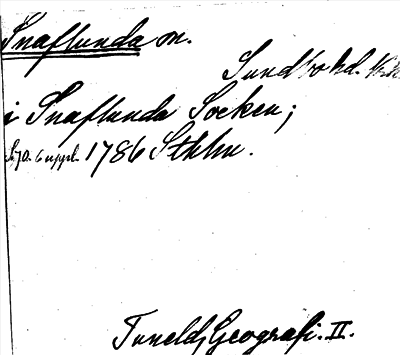 Snaflunda m.
Sundbo hd.
i Snaflunda Socken;
6 uppl. 1786 Sthlm.
Tunelds Geografi. II.